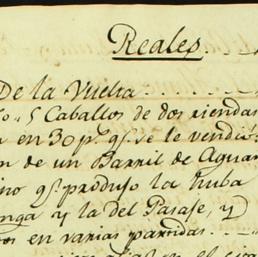 Reales
De la Vuelta
5 Caballos de dos riendas
en 30 p.s q.e se le vendió
de un Barril de Aguar
q.e produjo la huba
y la del Pasaje, y
en varias partidas